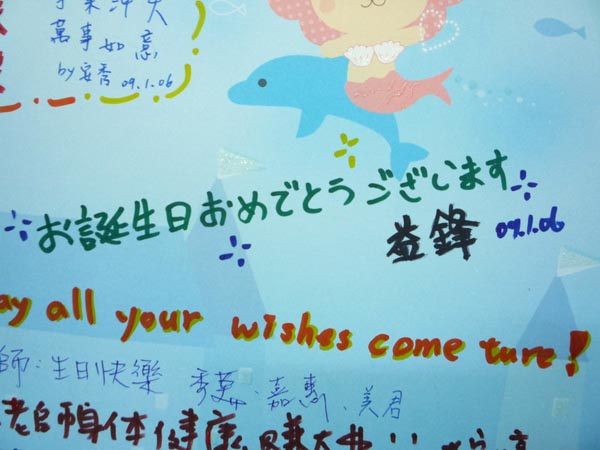 萬事如意
by 安秀 09.1.06
お誕生日おめでとうございます
益鋒 09.1.06
ay all your wishes come ture!
師:生日快樂 秀英、嘉惠、美君
老師身体健康